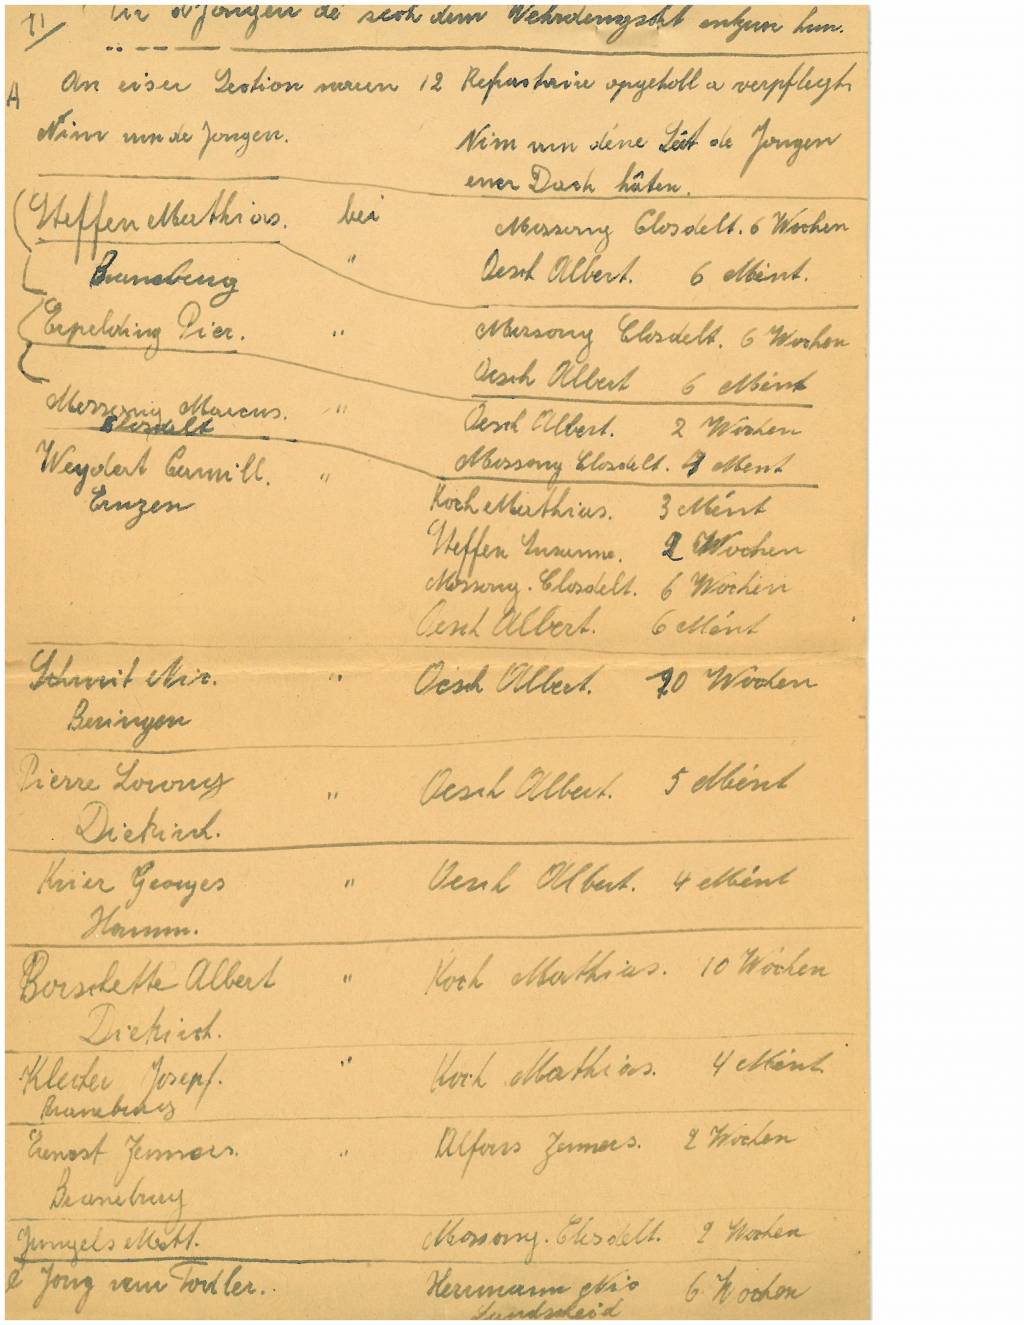 II/ fir d'Jongen de sech dem Wehrdengscht entzun hun.
A An eiser Section waren 12 Refractaire opgeholl a verpflegt.
Nim vun de Jongen.
Nim vun déne Leit de Jongen
ener Dach háten.
Steffen Mathias. bei Mossong Closdelt. 6 Wochen
Braneburg " Oesch Albert. 6 Mént.
Erpelding Pier. " Mossong Closdelt. 6 Wochen
Oesch Albert 6 Mént
Mossong Marcus. " Oesch Albert. 2 Wochen
Closdelt
Weydert Camill. " Mossong Closdelt. Ment
Ernzen Koch Mathias. 3 Ment
Steffen Susanne. 2 Wochen
Mossong. Closdelt. 6 Wochen
Oesch Albert. 6 Mént
Schmit Nic. " Oesch Albert. 20 Wochen
Beringen
Pierre " Oesch Albert. 5 Mént
Diekirch.
Krier Georges " Oesch Albert. 4 Mént
Hamm.
Borschette Albert " Koch Mathias. 10 Wochen
Diekirch.
Klecker Josepf. " Koch Mathias. 4 Mént
Braneburg
Ernest Jemmers. " Alfons Jemmers. 2 Wochen
Braneburg
Jungels Matt. Mossong. Closdelt. 2 Wochen
e Jong vum Todler. Herrmann Nic 6 Wochen
Landscheid